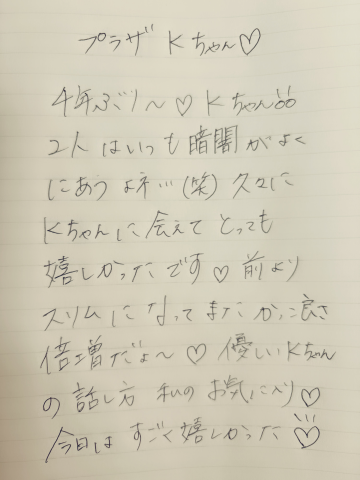 プラザ Kちゃん♡
4年ぶり〜♡Kちゃん
2人はいつも暗闇がよく
にあうよネ…(笑)久々に
Kちゃんに会えてとっても
嬉しかったです♡前より
スリムになってまたかっこ良さ
倍増だよ〜♡優しいKちゃん
の話し方 私のお気に入り♡
今日はすごく嬉しかった♡